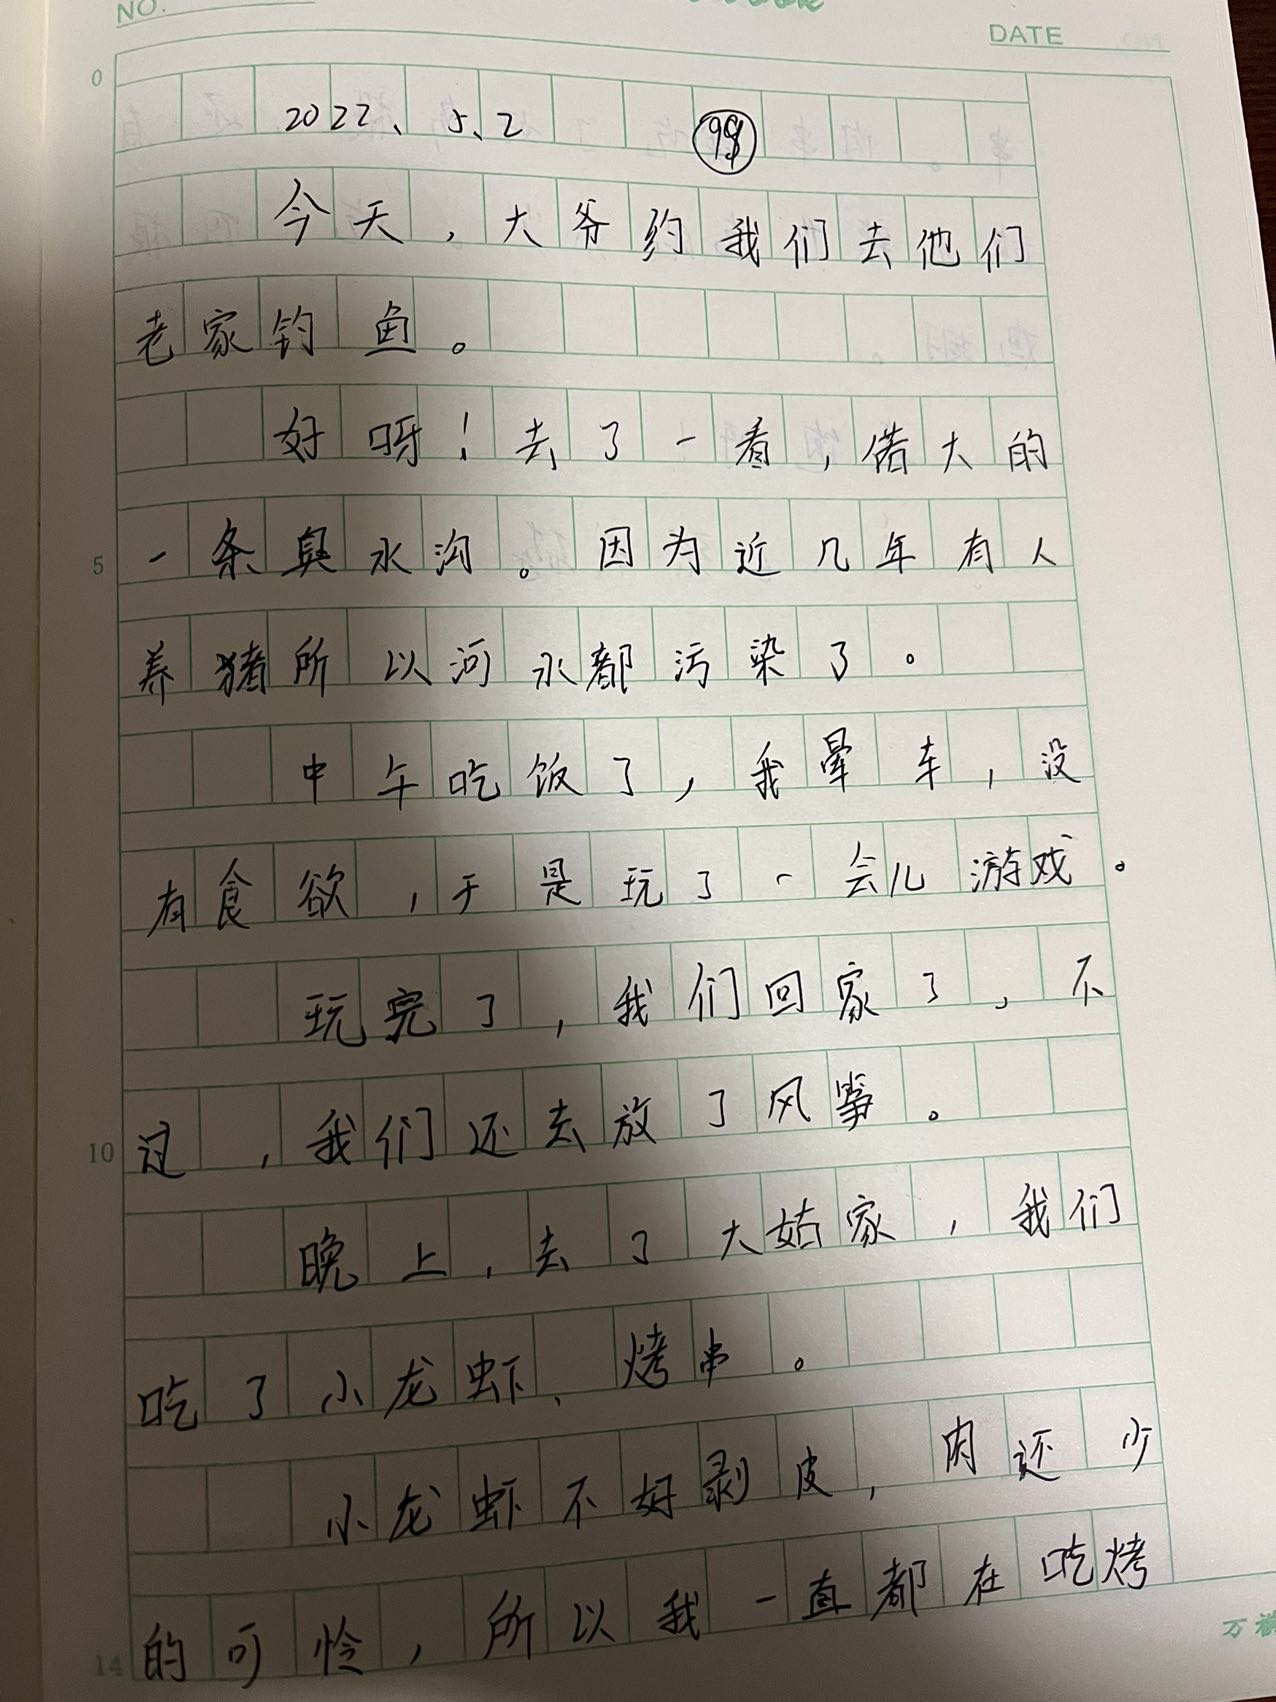 NO.
DATE
0
2022、5、2
今天,大爷约我们去他们
老家钓鱼。
好呀!去了一看,偌大的
5 一条臭水沟。因为近几年有人
养猪所以河水都污染了。
中午吃饭了,我晕车,没
有食欲,于是玩了一会儿游戏。
玩完了,我们回家了,不
10 过,我们还去放了风筝。
晚上,去了大姑家,我们
吃了小龙虾、烤串。
小龙虾不好剥皮,肉还少
14 的可怜,所以我一直都在吃烤